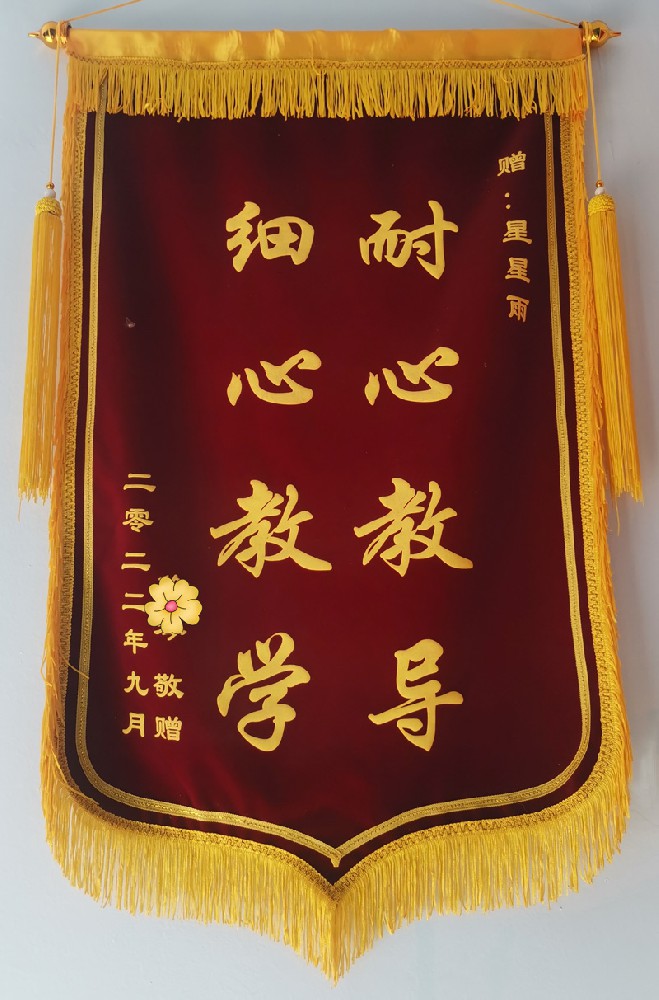 赠：星星雨
耐心教导
细心教学
敬赠
二零二二年九月